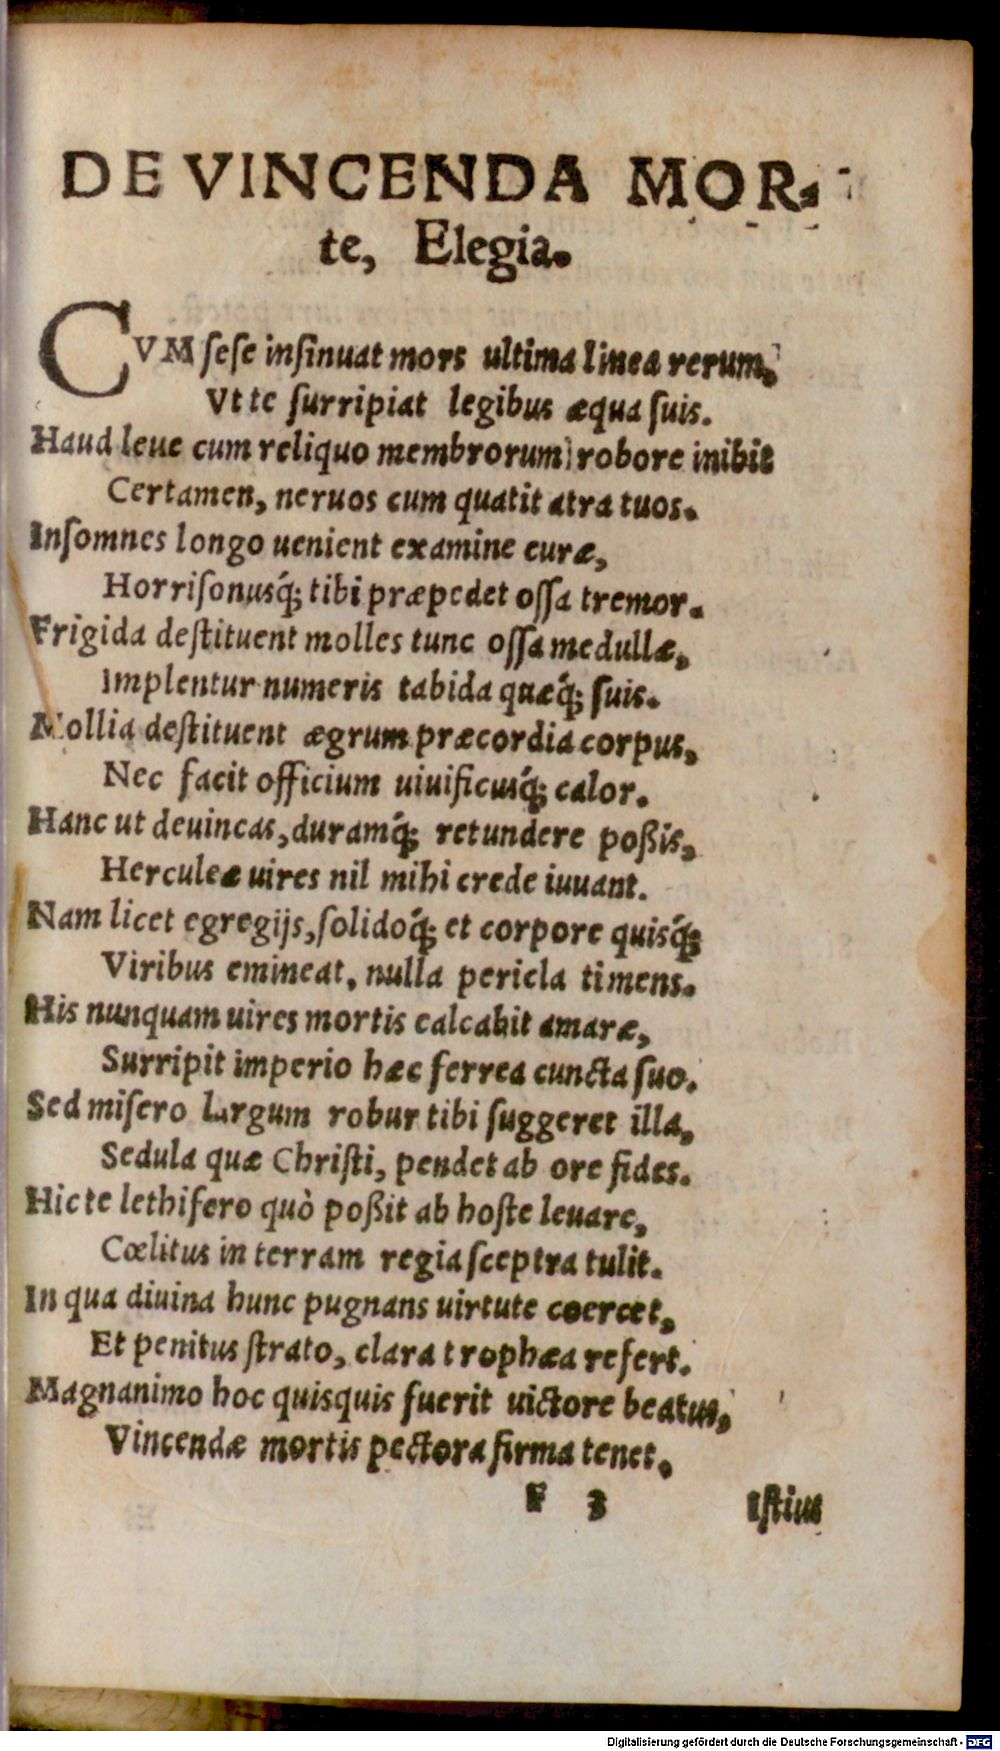 DE VINCENDA MOR-
te, Elegia.
CVM ſeſe inſinuat mors ultima linea rerum,
Vt te ſurripiat legibus æqua ſuis.
Haud leue cum reliquo membrorum robore inibit
Certamen, neruos cum quatit atra tuos.
Inſomnes longo uenient examine curæ,
Horriſonusq́; tibi præpedet oſſa tremor.
Frigida deſtituent molles tunc oſſa medullæ,
Implentur numeris tabida quæq́; ſuis.
Mollia deſtituent ægrum præcordia corpus,
Nec facit officium uiuificusq́; calor.
Hanc ut deuincas, duramq́; retundere poßis,
Herculeæ uires nil mihi crede iuuant.
Nam licet egregijs, ſolidoq́; et corpore quisq́;
Viribus emineat, nulla pericla timens.
His nunquam uires mortis calcabit amaræ,
Surripit imperio hæc ferrea cuncta ſuo.
Sed miſero largum robur tibi ſuggeret illa,
Sedula quæ Chriſti, pendet ab ore fides.
Hic te lethifero quò poßit ab hoſte leuare,
Cœlitus in terram regia ſceptra tulit.
In qua diuina hunc pugnans uirtute coercet,
Et penitus ſtrato, clara trophæa refert.
Magnanimo hoc quisquis fuerit uictore beatus,
Vincendæ mortis pectora firma tenet.
F 3 Iſtius
Digitalisierung gefördert durch die Deutsche Forschungsgemeinschaft - DFG